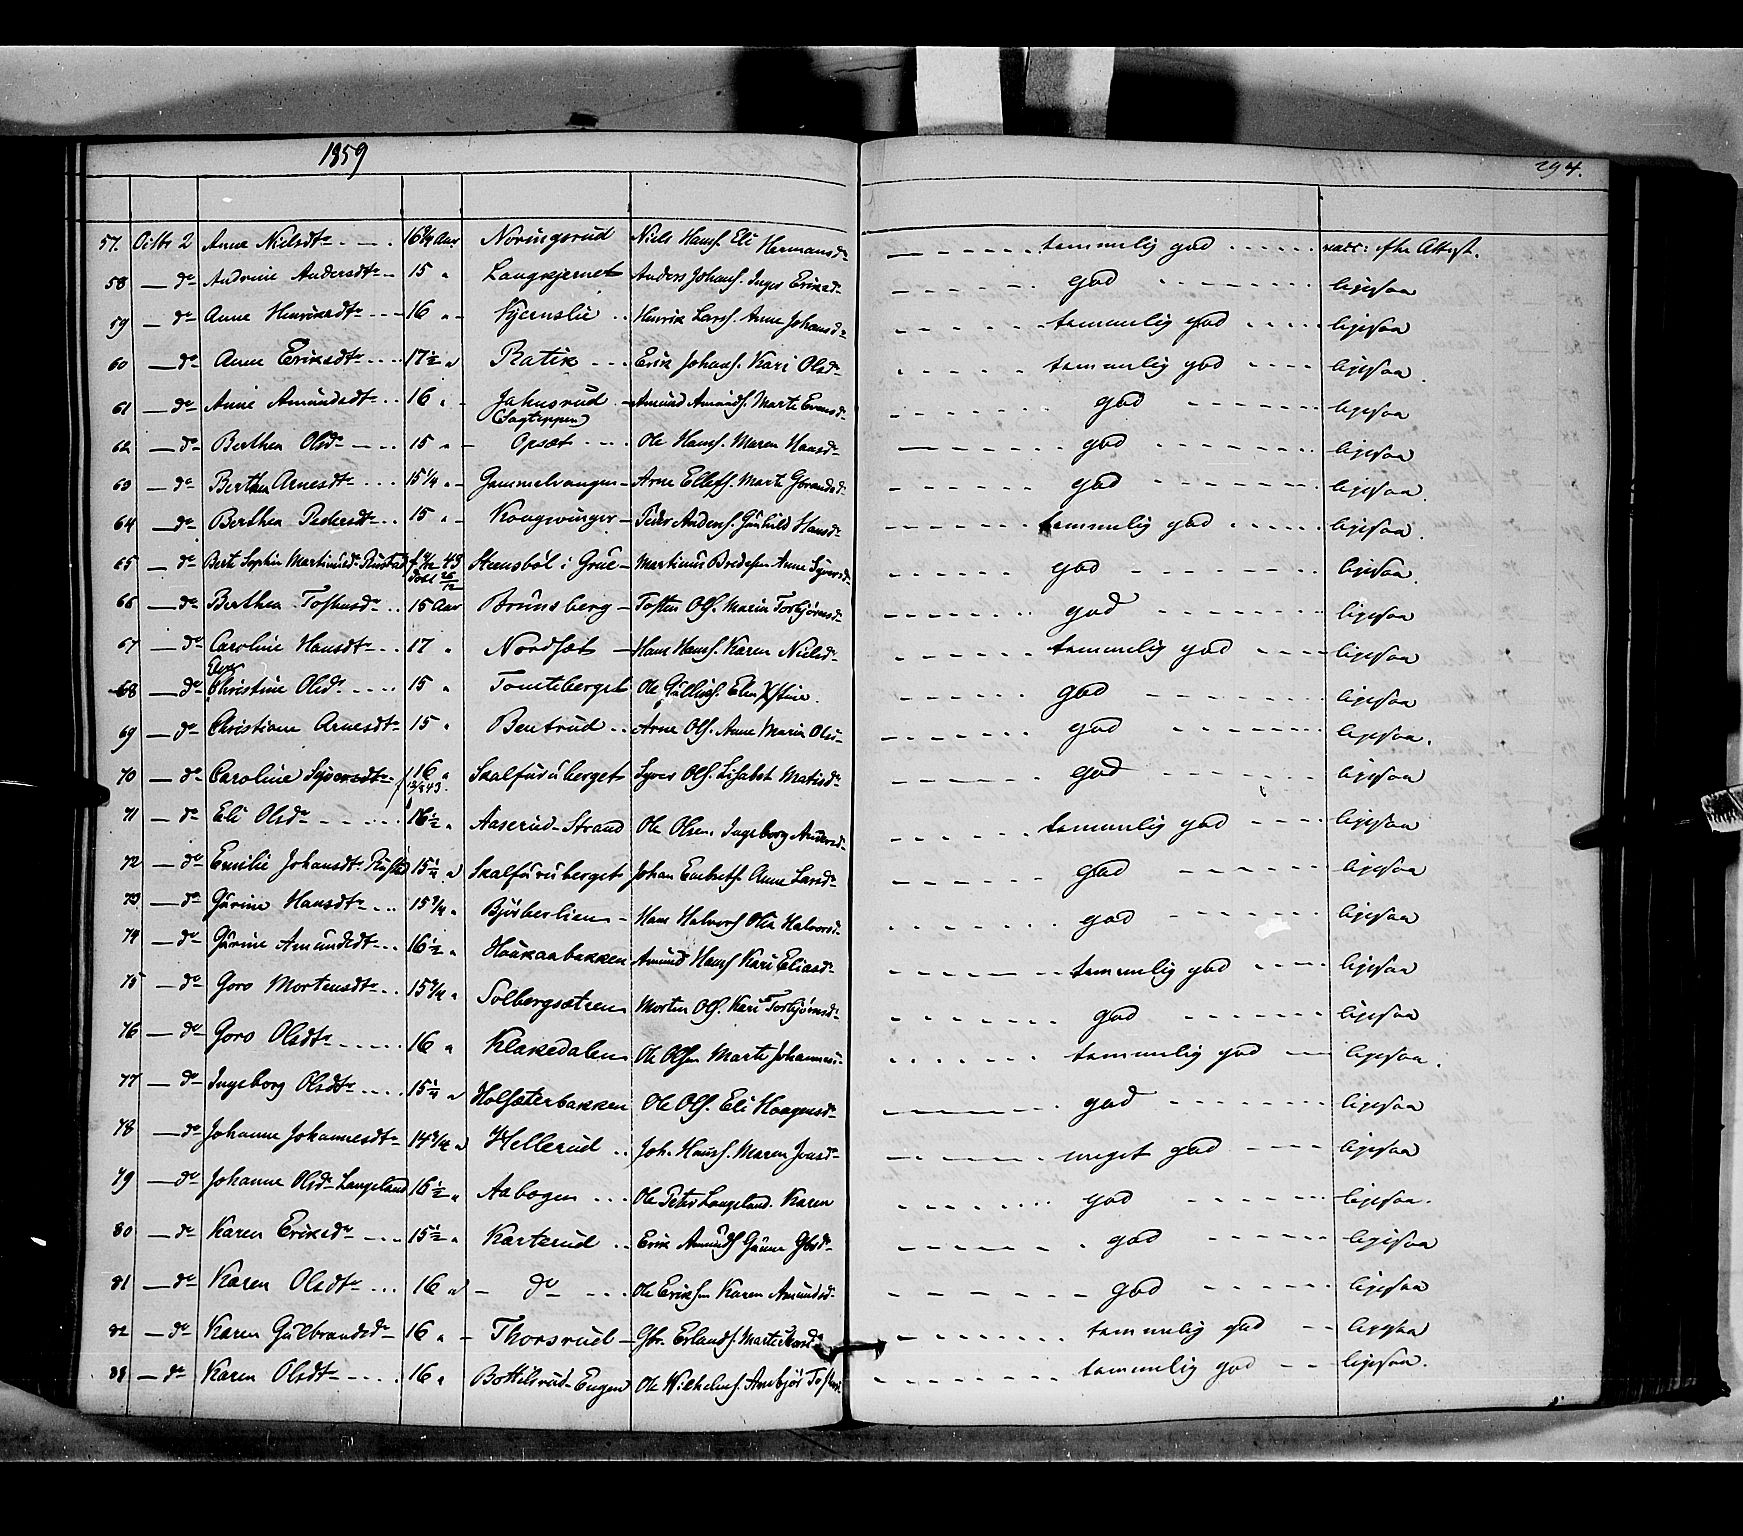 1859
294.
57. Octbr 2 Anne Nielsdtr 16 3/4 Aar Noringsrud Niels Hans. Eli Hermansd. temmelig god vacc: efter Attest.
58 do Andrine Andersdtr 15 " Langkjernet Anders Johans. Inger Eriksd. god ligesaa
59 do Anne Henriksdtr 16 " Kjernslie Henrik Lars. Anne Johansd. temmelig god ligesaa
60 do Anne Eriksdtr 17 1/2 " Ratik Erik Johans. Kari Olsd. temmelig god ligesaa
61 do Anne Amundsdtr 16 " Jahnsrud Amund Amunds. Marte Evensd. god ligesaa
62 do Berthea Olsd. 15 " Opsæt Ole Hans. Maren Hansd. god ligesaa
63 do Berthea Arnesdtr 15 1/4 " Gammelvangen Arne Ellefs. Marte Gbrandsd. god ligesaa.
64 do Berthea Pedersdtr 15 " Kongsvinger Peder Anders. Gunhild Hansd. temmelig god ligesaa.
65 do Berte Sophie Martinusd. Rustad Steensbøl i Grue Martinus Bredesen Anne Syversd. god ligesaa.
66 do Berthea Tostensd. 15 Aar Brunsberg Tosten Ols. Maria Torbjørnsd. god ligesaa
67 do Caroline Hansdtr 17 " Nordsæt Hans Hans. Karen Nielsd. temmelig god ligesaa
68 do Christine Olsd. 15 " Tomteberget Ole Gulliks. Elen Xstine. god ligesaa
69 do Christiane Arnesdtr 15 " Bentrud Arne Ols. Anne Maria Olsd. god ligesaa.
70 do Caroline Syversdtr 16 " Skalfuruberget Syver Ols. Lisabet Matisd. god ligesaa
71 do Eli Olsd. 16 1/2 " Aaserud-Strand Ole Olsen. Ingeborg Andersd. temmelig god ligesaa
72 do Emilie Johansdtr 15 1/4 " Skalfuruberget Johan Embrets. Anne Larsd. god ligesaa
73 do Gurine Hansdtr 15 3/4 " Bjørberlien Hans Halvors. Olia Halvorsd. god ligesaa
74 do Gurine Amundsdtr 16 1/2 " Haukaabakken Amund Hans. Kari Eliasd. temmelig god ligesaa
75 do Goro Mortensdtr 15 3/4 " Solbergsætren Morten Ols. Kari Torbjørnsd. god ligesaa
76 do Goro Olsdtr 16 " Klakedalen Ole Olsen Marte Johannesd. temmelig god ligesaa.
77 do Ingeborg Olsdtr 15 1/4 " Holsæterbakken Ole Ols. Eli Haagensd. god ligesaa
78 do Johanne Johannesdtr 14 3/4 " Hellerud Joh. Hans. Maren Joensd. meget god ligesaa
79 do Johanne Olsd. Langeland 16 1/2 " Aabogen Ole Peter Langeland. Karen god ligesaa.
80 do Karen Eriksd. 15 1/2 " Karterud Erik Amunds. Gbrd. god ligesaa
81 do Karen Olsdtr 16 " do Ole Eriksen Karen Amundsd. god ligesaa
82 do Karen Gulbrandsd. 16 " Thorsrud Gbr. Erlands. Marte temmelig god ligesaa
83 do Karen Olsdtr 16 " Bottilsrud-Eugen Ole Wilhelms. Anbjør Tostens. temmelig god ligesaa.